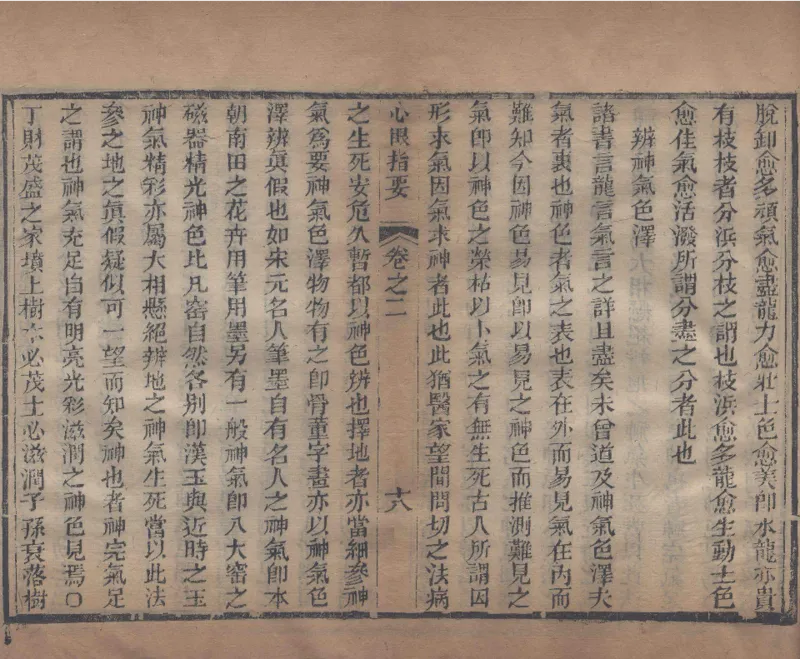 脫卸愈多頑氣愈盡龍力愈壯土色愈美卽水龍亦貴
有枝枝者分浜分枝之謂也枝浜愈多龍愈生動土色
愈佳氣愈活潑所謂分盡之分者此也
辨神氣色澤
諸書言龍言氣言之詳且盡矣未曾道及神氣色澤夫
氣者裏也神色者氣之表也表在外而易見氣在內而
難知今因神色易見卽以易見之神色而推測難見之
氣卽以神色之榮枯以卜氣之有無生死古人所謂因
形求氣因氣求神者此也此猶醫家望聞問切之法病
心眼指要 卷之二 十八
之生死安危久暫都以神色辨也擇地者亦當細參神
氣爲要神氣色澤物物有之卽骨董字畫亦以神氣色
澤辨眞假也如宋元名人筆墨自有名人之神氣卽本
朝南田之花卉用筆用墨另有一般神氣卽八大窑之
磁器精光神色比凡窑自然各別卽漢玉與近時之玉
神氣精彩亦屬大相懸絕辨地之神氣生死當以此法
參之地之眞假疑似可一望而知矣神也者神完氣足
之謂也神氣充足自有明亮光彩滋潤之神色見焉○
丁財茂盛之家墳上樹木必茂土必滋潤子孫衰落樹